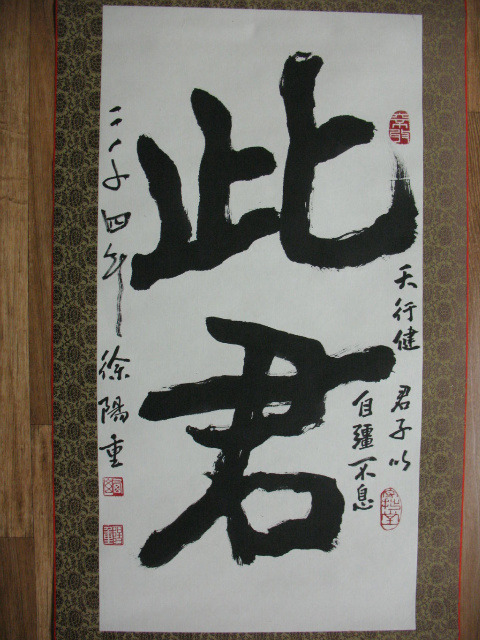 此君
天行健 君子以
自疆不息
二〇〇四年 徐陽重